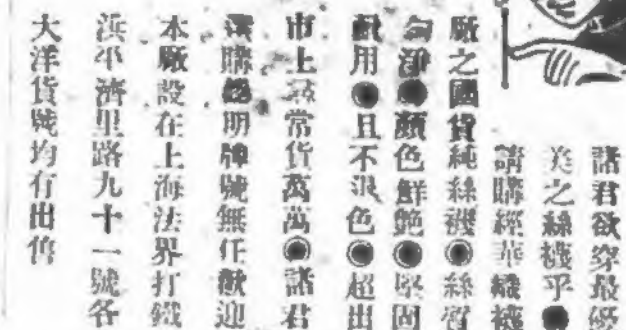 諸君欲穿最優
美之絲襪乎●
請購經華織襪
廠之國貨純絲襪◉絲質
勻淨●顏色鮮艷◉堅固
耐用●且不色◉超出
市上尋常貨萬萬◉諸君
購認明牌號無任歡迎
本廠設在上海法界打鐵
浜平濟里路九十一號各
大洋貨號均有出售